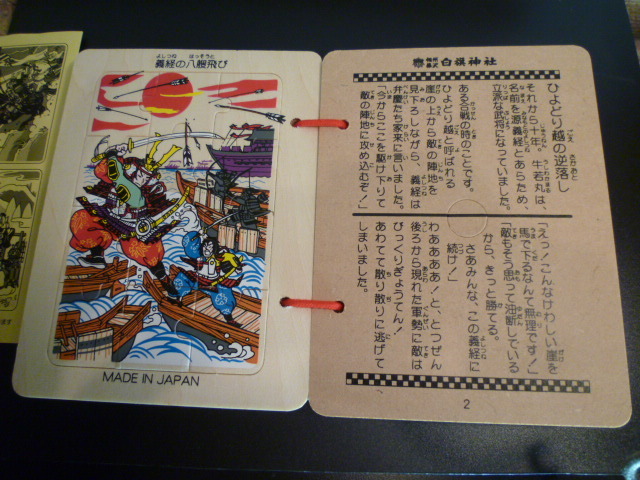 義経の八艘飛び
MADE IN JAPAN
白旗神社
ひよどり越の逆落し
それから十年、牛若丸は、
名前を源義経とあらため、
立派な武将になっていました。
ある合戦の時のことです。
ひよどり越と呼ばれる
崖の上から敵の陣地を
見下ろしながら、義経は
弁慶たち家来に言いました。
「今からここを駆け下りて
敵の陣地に攻め込むぞ！」
「えっ！こんなけわしい崖を
馬で下るなんて無理です！」
敵もそう思って油断している
から、きっと勝てる。
さあみんな、この義経に
続け！
わああああ！と、とつぜん
後ろから現れた軍勢に敵は
びっくりぎょうてん！
あわてて散り散りに逃げて
しまいました。
2